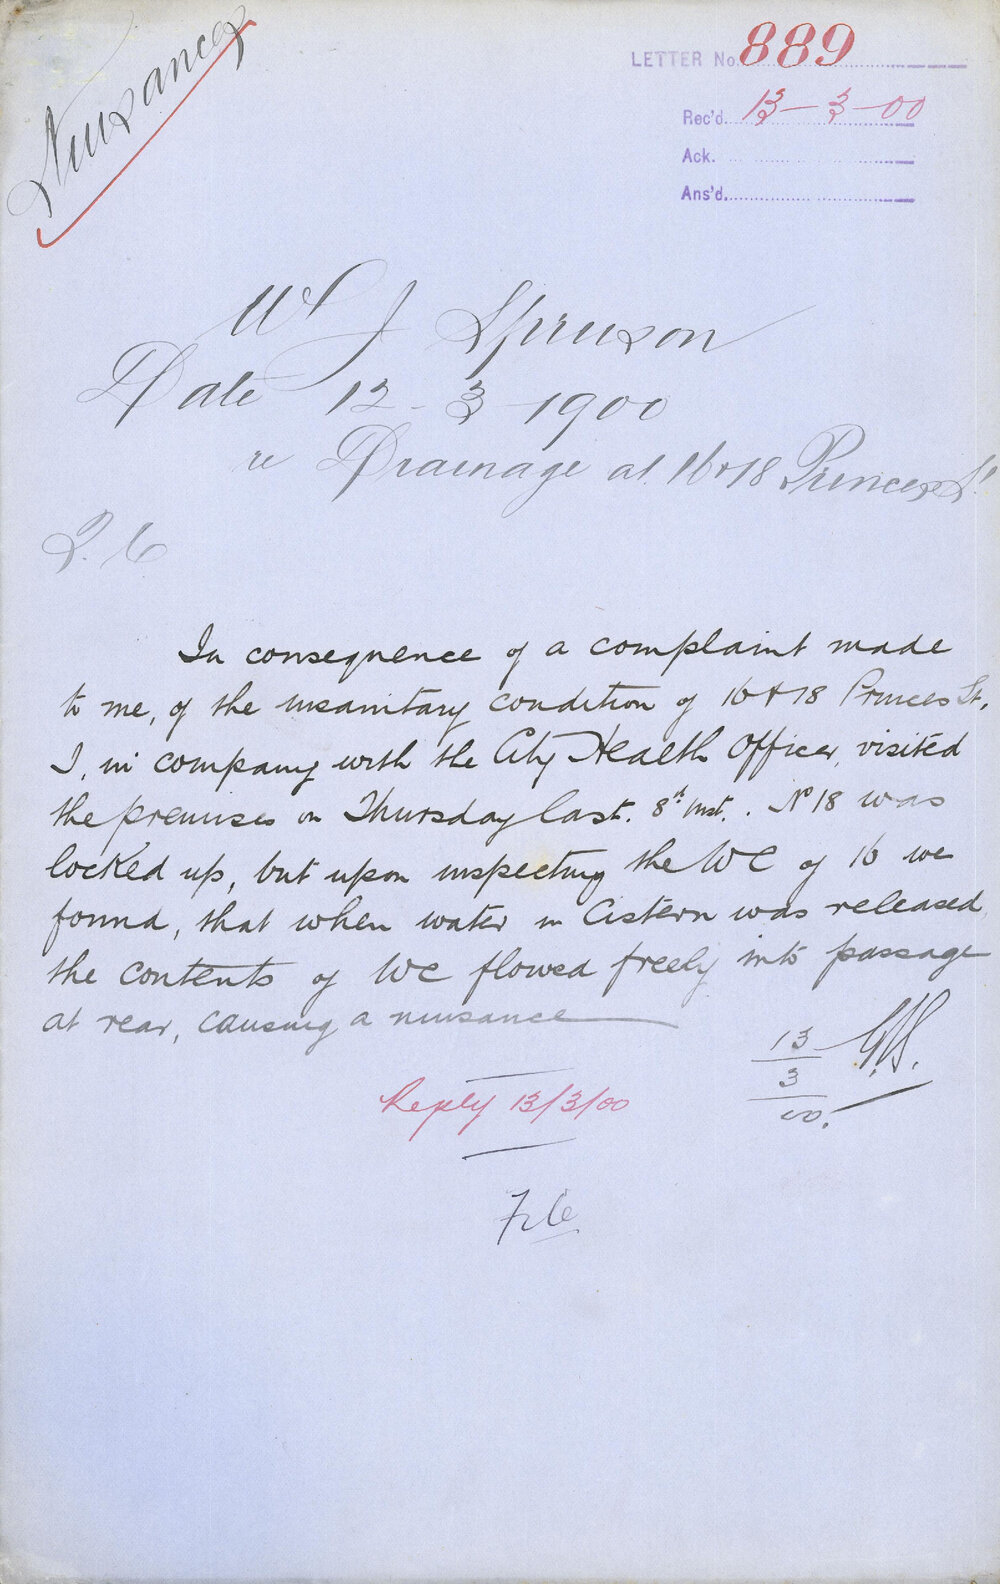 Nuisances
LETTER No. 889
Rec'd. 13-3-00
Ack.
Ans'd.
W J Spruson
Date 12-3-1900
re Drainage at 16 & 18 Princes St
In consequence of a complaint made
to me, of the insanitary condition of 16 & 18 Princes St,
I, in company with the City Health Officer, visited
the premises on Thursday last. 8th Inst. . No 18 was
locked up, but upon inspecting the WC of 16 we
found, that when water in Cistern was released,
the contents of WC flowed freely into passage
at rear, causing a nuisance
13
3
00.
Reply 13/3/00